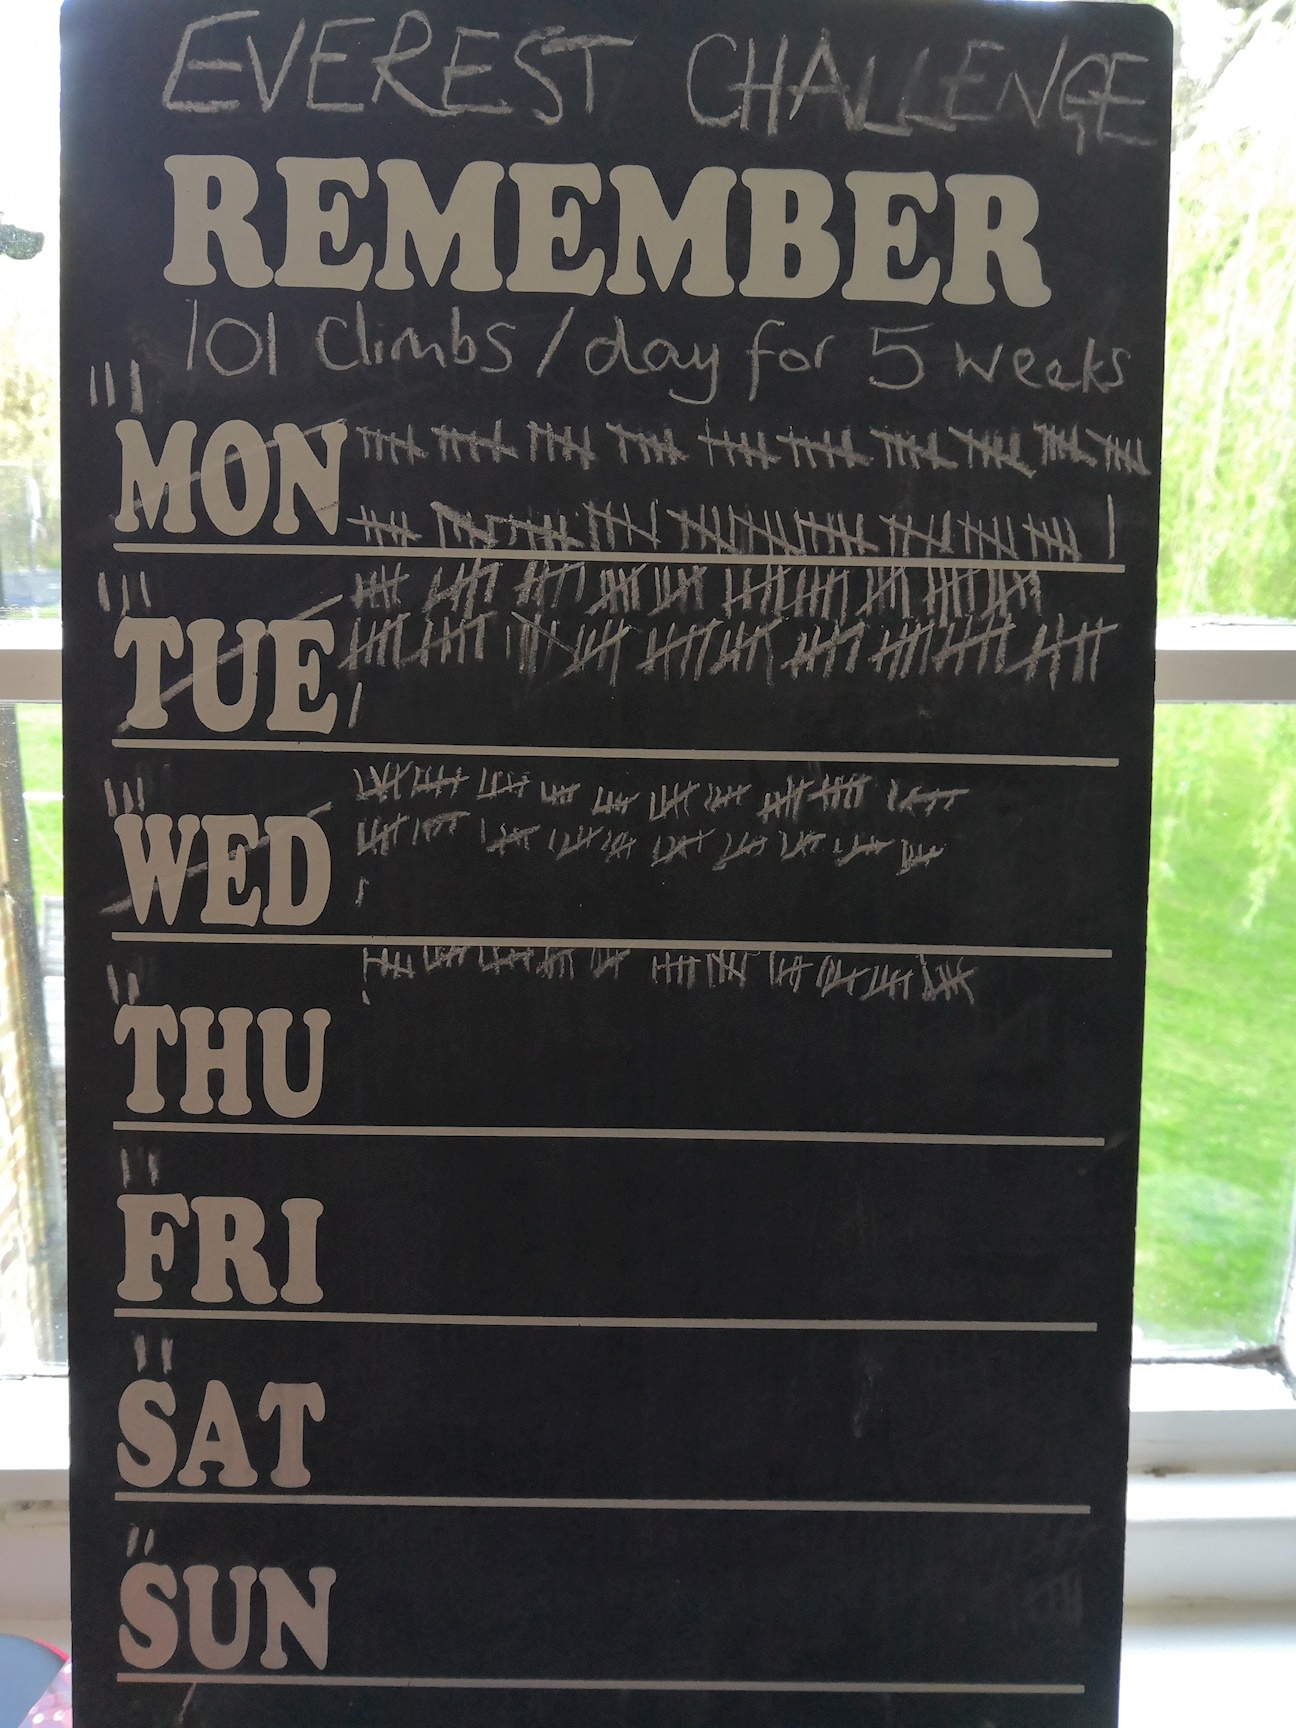 EVEREST CHALLENGE
REMEMBER
101 climbs/day for 5 weeks
MON
TUE
WED
THU
FRI
SAT
SUN